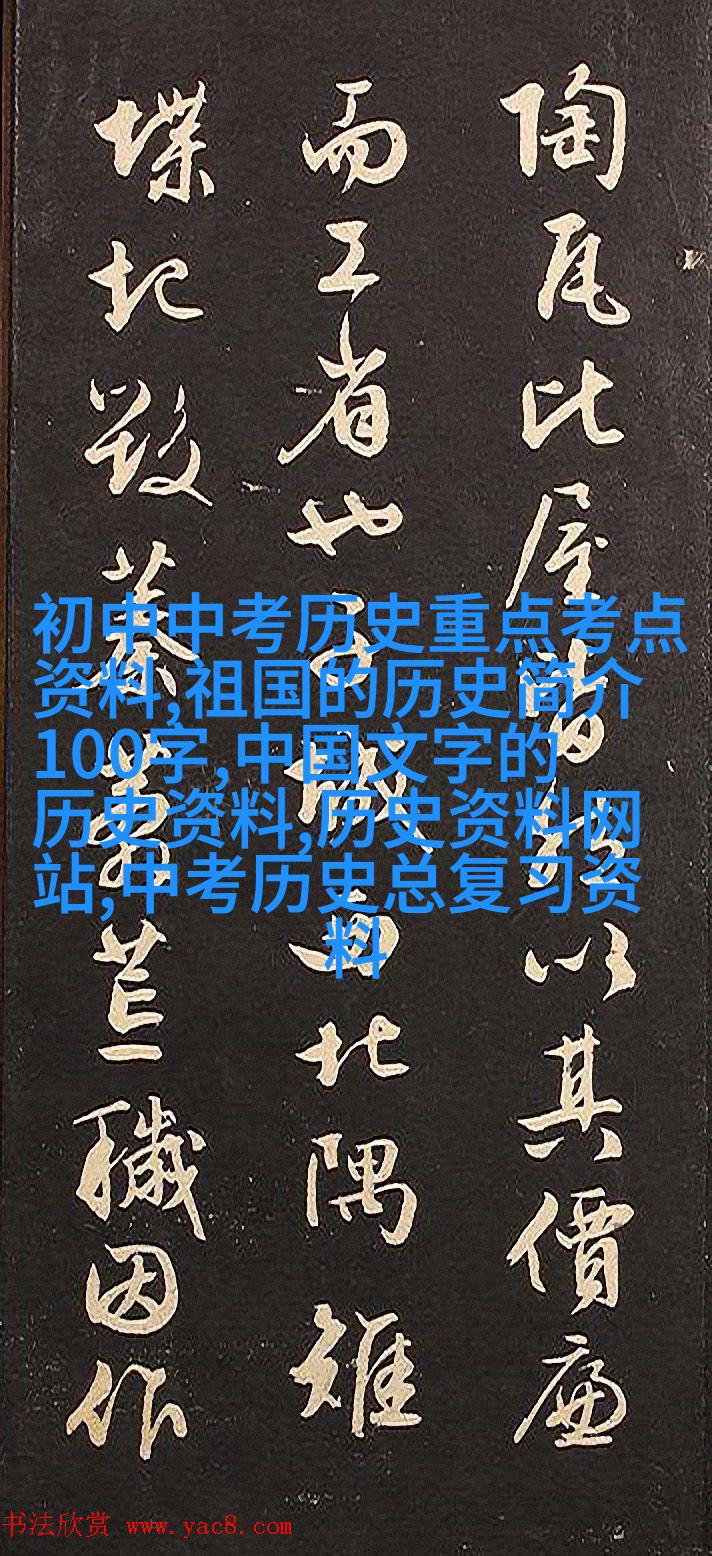 陶瓦比屋皆然以其價廉
而工省也子城西北隅雉
堞圮毀蓁莽荒穢因作
初中中考历史重点考点
资料,祖国的历史简介
100字,中国文字的
历史资料,历史资料网
站,中考历史总复习资
料
书法欣赏 www.yac8.com